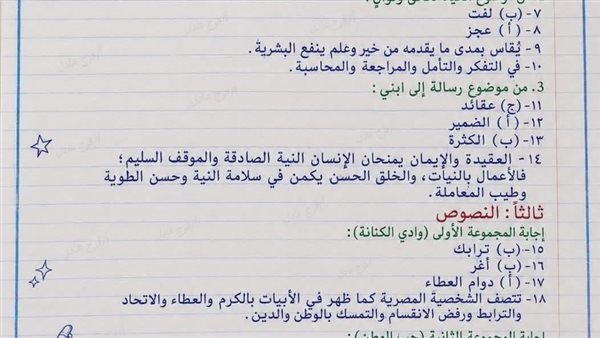 ٧- (ب) لفت
٨- (أ) عجز
٩- يُقاس بمدى ما يقدمه من خير وعلم ينفع البشرية.
١٠- في التفكر والتأمل والمراجعة والمحاسبة.
3. من موضوع رسالة إلى ابني :
١١- (ج) عقائد
١٢- (أ) الضمير
١٣- (ب) الكثرة
١٤- العقيدة والإيمان يمنحان الإنسان النية الصادقة والموقف السليم؛
فالأعمال بالنيات، والخلق الحسن يكمن في سلامة النية وحسن الطوية
وطيب المعاملة.
ثالثاً: النصوص
إجابة المجموعة الأولى (وادي الكنانة):
١٥- (ب) ترابك
١٦- (ب) أغر
١٧- (أ) دوام العطاء
١٨- تتصف الشخصية المصرية كما ظهر في الأبيات بالكرم والعطاء والاتحاد
والترابط ورفض الانقسام والتمسك بالوطن والدين.
إجابة المجموعة الثانية (حب الوطن):